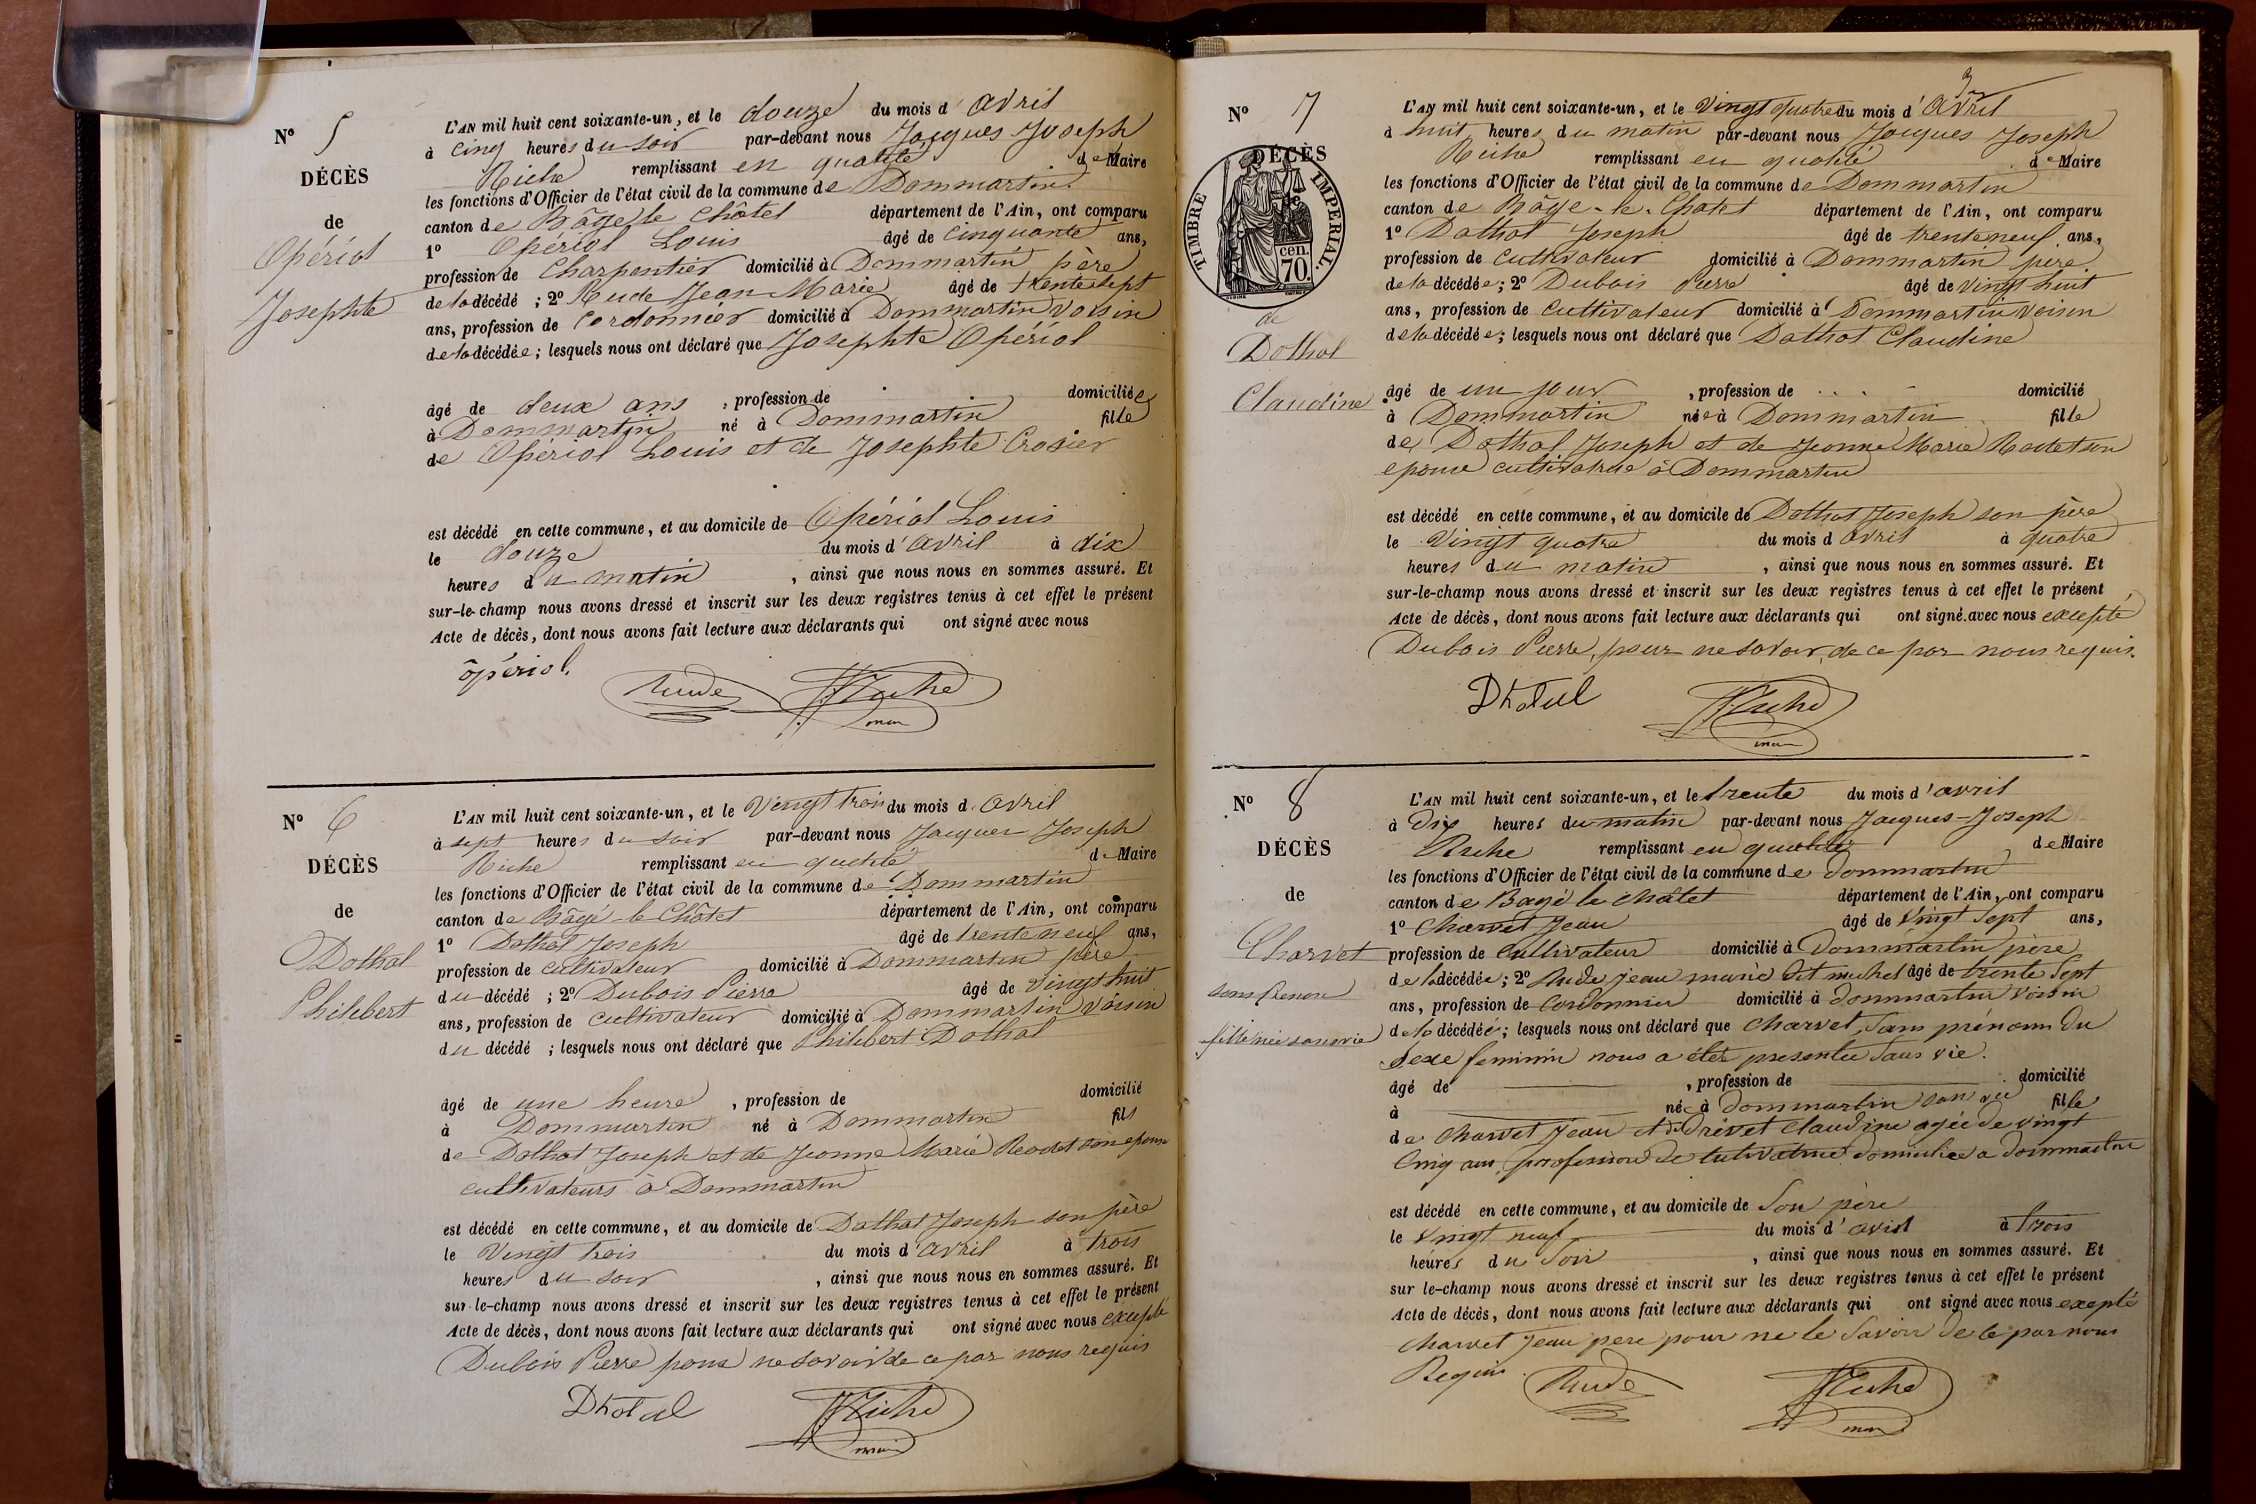 N° 5
DÉCÈS
de
Opériol
Josephte
L'AN mil huit cent soixante-un, et le douze du mois d'avril
à cinq heures du soir par-devant nous Jacques Joseph
Riche remplissant en qualité de Maire
les fonctions d'Officier de l'état civil de la commune de Dommartin
canton de Bâgé le Châtel département de l'Ain, ont comparu
1° Opériol Louis âgé de cinquante ans,
profession de Charpentier domicilié à Dommartin père
de la décédé ; 2° Rude Jean Marie âgé de trente sept
ans, profession de Cordonnier domicilié à Dommartin voisin
de la décédée ; lesquels nous ont déclaré que Josephte Opériol
âgé de deux ans , profession de domiciliée
à Dommartin né à Dommartin fille
de Opériol Louis et de Josephte Crosier
est décédé en cette commune, et au domicile de Opériol Louis
le douze du mois d'avril à dix
heures du matin , ainsi que nous nous en sommes assuré. Et
sur-le-champ nous avons dressé et inscrit sur les deux registres tenus à cet effet le présent
Acte de décès, dont nous avons fait lecture aux déclarants qui ont signé avec nous
opériol. Rude JJ Riche
maire
N° 6
DÉCÈS
de
Dothal
Philibert
L'AN mil huit cent soixante-un, et le Vingt trois du mois d'avril
à sept heures du soir par-devant nous Jacques Joseph
Riche remplissant en qualité de Maire
les fonctions d'Officier de l'état civil de la commune de Dommartin
canton de Bâgé-le-Châtel département de l'Ain, ont comparu
1° Dothal Joseph âgé de trente neuf ans,
profession de cultivateur domicilié à Dommartin père
du décédé ; 2° Dubois Pierre âgé de vingt huit
ans, profession de cultivateur domicilié à Dommartin voisin
du décédé ; lesquels nous ont déclaré que Philibert Dothal
âgé de une heure , profession de domicilié
à Dommartin né à Dommartin fils
de Dothal Joseph et de Jeanne Marie son epouse
cultivateurs à Dommartin
est décédé en cette commune, et au domicile de Dothal Joseph son père
le Vingt trois du mois d'avril à trois
heures du soir , ainsi que nous nous en sommes assuré. Et
sur-le-champ nous avons dressé et inscrit sur les deux registres tenus à cet effet le présent
Acte de décès, dont nous avons fait lecture aux déclarants qui ont signé avec nous excepté
Dubois Pierre pour ne savoir de ce par nous requis
Dhotal JJ Riche
maire
N° 7
DÉCÈS
TIMBRE IMPÉRIAL.
cen.
70
de
Dothal
Claudine
L'AN mil huit cent soixante-un, et le Vingt quatre du mois d'Avril
à huit heures du matin par-devant nous Jacques Joseph
Riche remplissant en qualité de Maire
les fonctions d'Officier de l'état civil de la commune de Dommartin
canton de Bâgé-le-Chatel département de l'Ain, ont comparu
1° Dothal Joseph âgé de trente neuf ans,
profession de cultivateur domicilié à Dommartin père
de la décédée ; 2° Dubois Pierre âgé de vingt huit
ans, profession de cultivateur domicilié à Dommartin voisin
de la décédée ; lesquels nous ont déclaré que Dothal Claudine
âgé de un jour , profession de domicilié
à Dommartin née à Dommartin fille
de Dothal Joseph et de Jeanne Marie son
epouse cultivatrice à Dommartin
est décédé en cette commune, et au domicile de Dothal Joseph son père
le Vingt quatre du mois d avril à quatre
heures du matin , ainsi que nous nous en sommes assuré. Et
sur-le-champ nous avons dressé et inscrit sur les deux registres tenus à cet effet le présent
Acte de décès, dont nous avons fait lecture aux déclarants qui ont signé avec nous excepté
Dubois Pierre, pour ne savoir, de ce par nous requis.
Dhotal JJ Riche
maire
N° 8
DÉCÈS
de
Charvet
sans Prenom
fille née sans vie
L'AN mil huit cent soixante-un, et le trente du mois d'avril
à Dix heures du matin par-devant nous Jacques-Joseph
Riche remplissant en qualité de Maire
les fonctions d'Officier de l'état civil de la commune de dommartin
canton de Bagé le châtel département de l'Ain, ont comparu
1° Charvet Jean âgé de Vingt Sept ans,
profession de Cultivateur domicilié à Dommartin père
de la décédée ; 2° Rude Jean marie dit michel âgé de trente Sept
ans, profession de Cordonnier domicilié à dommartin voisin
de la décédée ; lesquels nous ont déclaré que Charvet Sans prénom du
sexe feminin nous a étée presentée Sans vie.
âgé de , profession de domicilié
à née à dommartin sans vie fille
de Charvet Jean et de Drevet Claudine agée de vingt
Cinq ans, profession de cultivatrice domiciliée a dommartin
est décédé en cette commune, et au domicile de Son père
le Vingt neuf du mois d'avril à trois
heures du Soir , ainsi que nous nous en sommes assuré. Et
sur le-champ nous avons dressé et inscrit sur les deux registres tenus à cet effet le présent
Acte de décès, dont nous avons fait lecture aux déclarants qui ont signé avec nous excepté
Charvet Jean pere pour ne le Savoir de ce par nous
Requis. Rude JJ Riche
maire